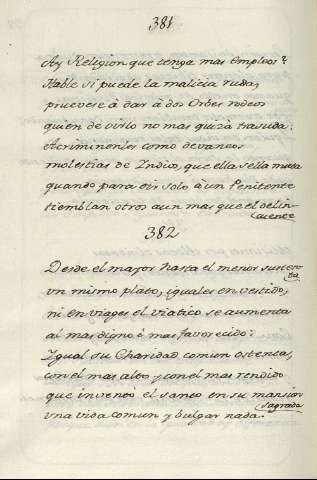 381
Ay Religion que tenga mas empleos?
Hable si puede la malicia ruda,
pruevese à dar à dos Orbes rodeos
quien de virlo no mas quizà trasuda:
Acriminenles como devaneos
molestias de Indios, que ella sella muda
quando para oir solo à un Penitente
tiemblan otros aun mas que el delin-
cuente
382
Desde el mayor hasta el menor susten-
ta
vn mismo plato, iguales en vestido,
ni en viages el viatico se aumenta
al mas digno ò mas favorecido:
Igual su Charidad comun ostenta,
con el mas alto y con el mas rendido
que inventò el santo en su mansion
sagrada
vna vida comun y bulgar nada.